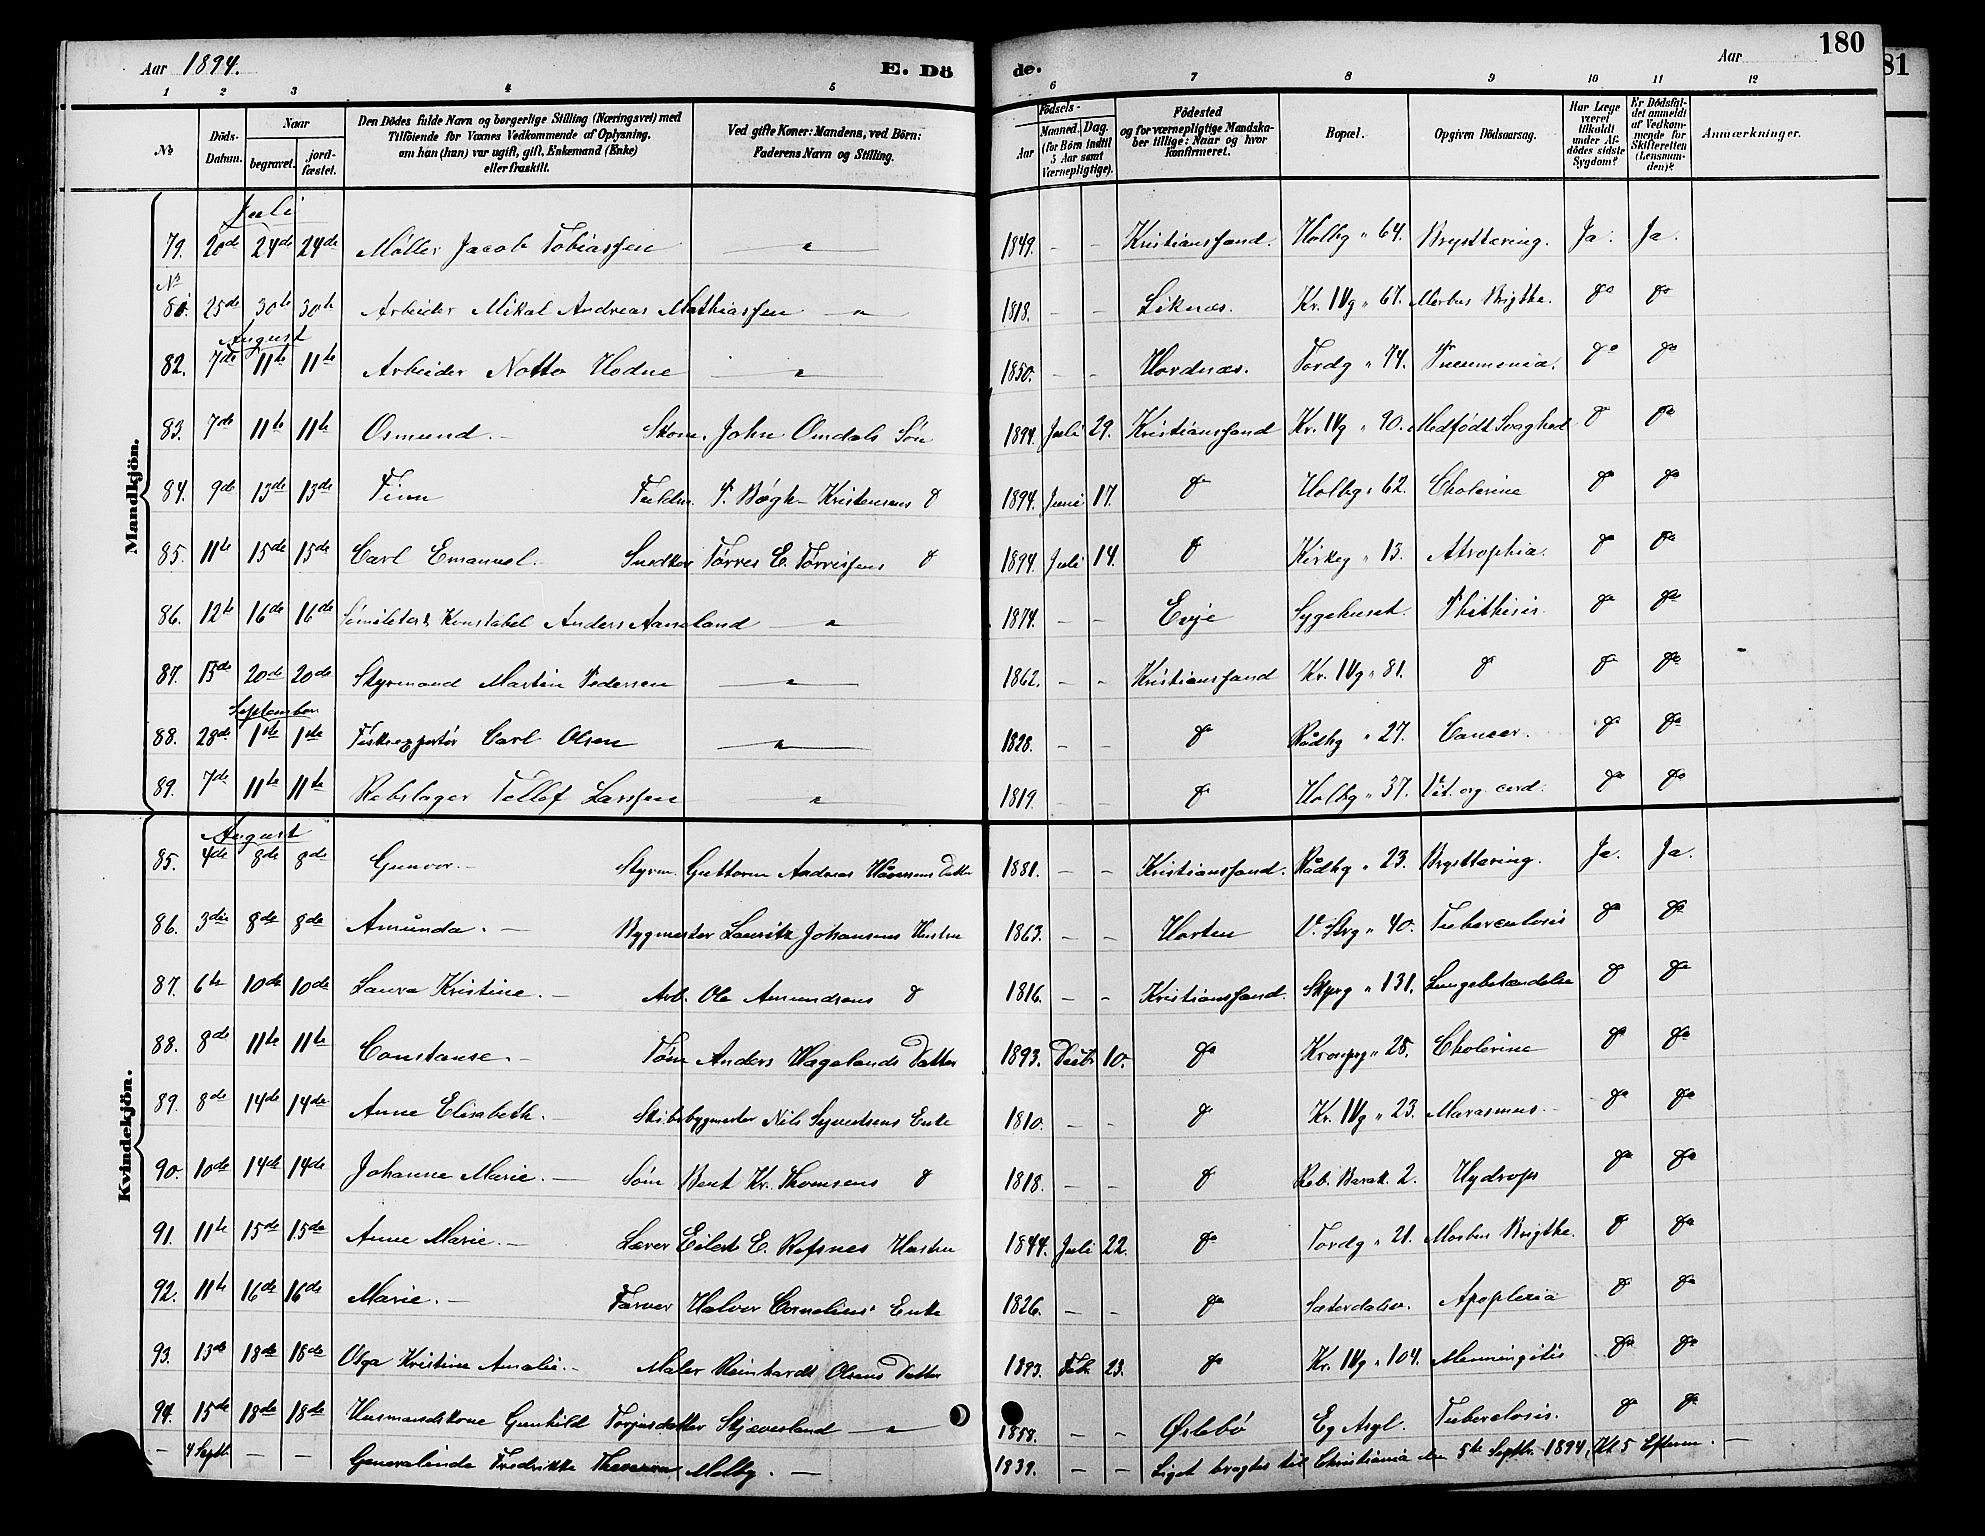 Aar 1894. E. Dö de. Aar 180
81
1 2 3 4 5 6 7 8 9 10 11 12
No Döds-Datum. Naar begravet. jordfæstet. Den Dödes fulde Navn og borgerlige Stilling (Næringsvei) med Tilföiende for Voxnes Vedkommende af Oplysning, om han (hun) var ugift, gift, Enkemand (Enke) eller fraskilt. Ved gifte Koner: Mandens, ved Börn: Faderens Navn og Stilling. Födsels- Aar Maaned. Dag. (for Börn indtil 5 Aar samt Værnepligtige). Födested og for værnepligtige Mandskaber tillige: Naar og hvor Konfirmeret. Bopæl. Opgiven Dödsaarsag. Har Læge været tilkaldt under Afdödes sidste Sygdom? Er Dödsfaldet anmeldt af Vedkommende for Skifteretten (Lensmanden)? Anmærkninger.
Mandkjön.
Juli
79. 20de 24de 24de Møller Jacob Tobiassen " 1849. - - Kristianssand. Holbg " 64. Brysttæring. Ja. Ja.
No
81. 25de 30te 30te Arbeider Mikal Andreas Mathiassen " 1818. - - Liknæs. Kr. IVg " 67. Morbus Brigthe. do do
August
82. 7de 11te 11te Arbeider Notto Hodne " 1850. - - Hordnæs. Tordg " 74. Pneumonia. do do
83. 7de 11te 11te Osmund. - Skom. John Omdals Søn 1894. Juli 29. Kristianssand Kr. IVg " 90. Medfödt Svaghed do do
84. 9de 13de 13de Finn Fuldm. P. Bøgh Kristensens do 1894. Juni 17. do Holbg " 62. Cholerine do do
85. 11te 15de 15de Carl Emanuel. Snedker Tørres E. Tørrissens do 1894. Juli 14. do Kirkeg " 13. Atrophia. do do
86. 12te 16de 16de Konstabel Anders Aaneland " 1874. - - Evje Sygehuset. Phthisis. do do
87. 15de 20de 20de Styrmand Martin Pedersen " 1862. - - Kristianssand Kr. IVg " 81. do do do
September
88. 28de 1ste 1ste Fiskeexportør Carl Olsen " 1828. - - do Rådhg " 27. Cancer. do do
89. 7de 11te 11te Rebslager Tellef Larssen " 1819. - - do Holbg " 37. Vit. org. cord. do do
Kvindekjön.
August
85. 4de 8de 8de Gunvor. - Styrm. Guttorm Andreas Datter 1881. - - Kristianssand. Rådhg " 23. Brysttæring. Ja. Ja.
86. 3die 8de 8de Amunda. - Bygmester Lauritz Johansens Hustru 1863. - - Horten V. Strg " 40. Tuberculosis do do
87. 6te 10de 10de Laura Kristine. - Arb. Ole Amundsens do 1816. - - Kristianssand. Skprg " 131. Lungebetændelse do do
88. 8de 11te 11te Constanse. - Tøm. Anders Hagelands Datter 1893. Decbr 10. do Kronprg " 28. Cholerine do do
89. 8de 14de 14de Anne Elisabeth. - Skibsbygmester Nils Syvertsens Enke 1810. - - do Kr. IVg " 23. Marasmus. do do
90. 10de 14de 14de Johanne Marie. - Søm. Bent Kr. Thomsens do 1818. - - do Reb. Barak. 2. Hydrops do do
91. 11te 15de 15de Anne Marie. - Lærer Eilert E. Refsnes Hustru 1844. Juli 22. do Tordg " 21. Morbus Brigthe. do do
92. 11te 16de 16de Marie. - Farver Halvor Cornelius' Enke 1826. - - do Sæterdalsv. Apoplexia do do
93. 13de 18de 18de Olga Kristine Amalie. - Maler Reinhardt Olsens Datter 1893. Feb. 23. do Kr. IVg " 104. Menningitis do do
94. 15de 18de 18de Husmandskone Gunhild Torjusdatter Skjæverland " 1858. - - Øslebö Eg Asyl. Tuberclosis. do do
- 4 Septb. - - Generalinde Fredrikke Theresea Moltzg. - 1839. - - Liget bragtes til Christiania den 5te Septbr. 1894, Kl. 5 Efterm. -